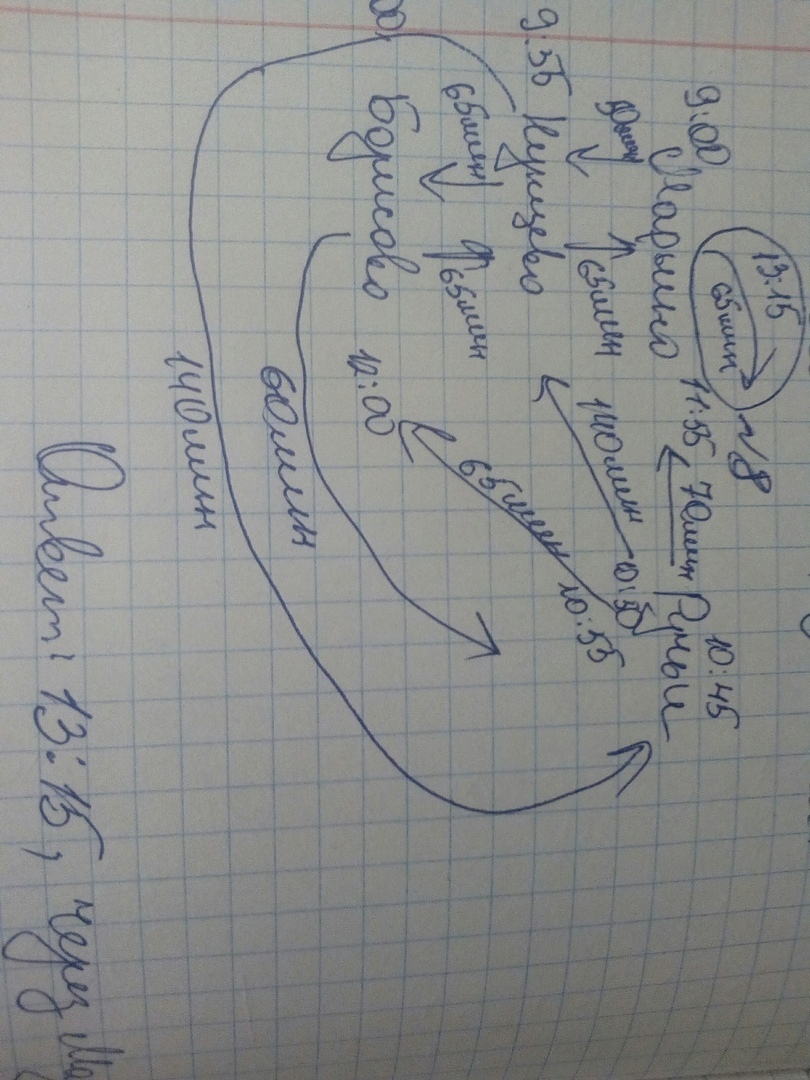 №8
13:15
65мин
9:00 Марьино 11:55 70мин Речные 10:45
50мин
65мин
140мин
10:50
9:55 Кунцево
65мин
65мин
65мин
10:55
Борисово 12:00
60мин
140мин
Ответ: 13:15, через